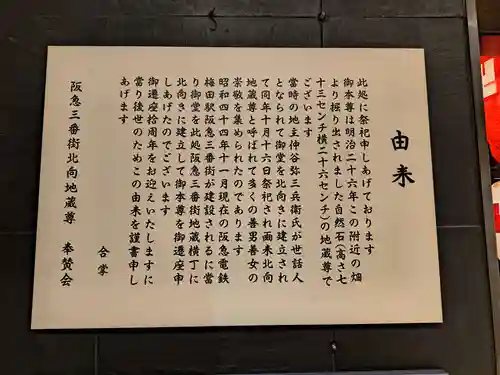 由来
此処に祭祀申しあげております
御本尊は明治二十六年この附近の畑
より掘り出されました自然石(高さ七
十三センチ横二十六センチ)の地蔵尊で
ございます
当時の地主仲谷弥三兵衛氏が世話人
となられて御堂を北向きに建立され
て同年十月十六日祭祀され爾来北向
地蔵尊と呼ばれて多くの善男善女の
崇敬を集められたのであります
昭和四十四年十一月現在の阪急電鉄
梅田駅阪急三番街が建設されるに当
り御堂を此処阪急三番街地蔵横丁に
北向きに建立して御本尊を御遷座申
しあげたのでございます
御遷座拾周年をお迎えいたしますに
当り後世のためこの由来を謹書申し
あげます
合掌
阪急三番街北向地蔵尊 奉賛会